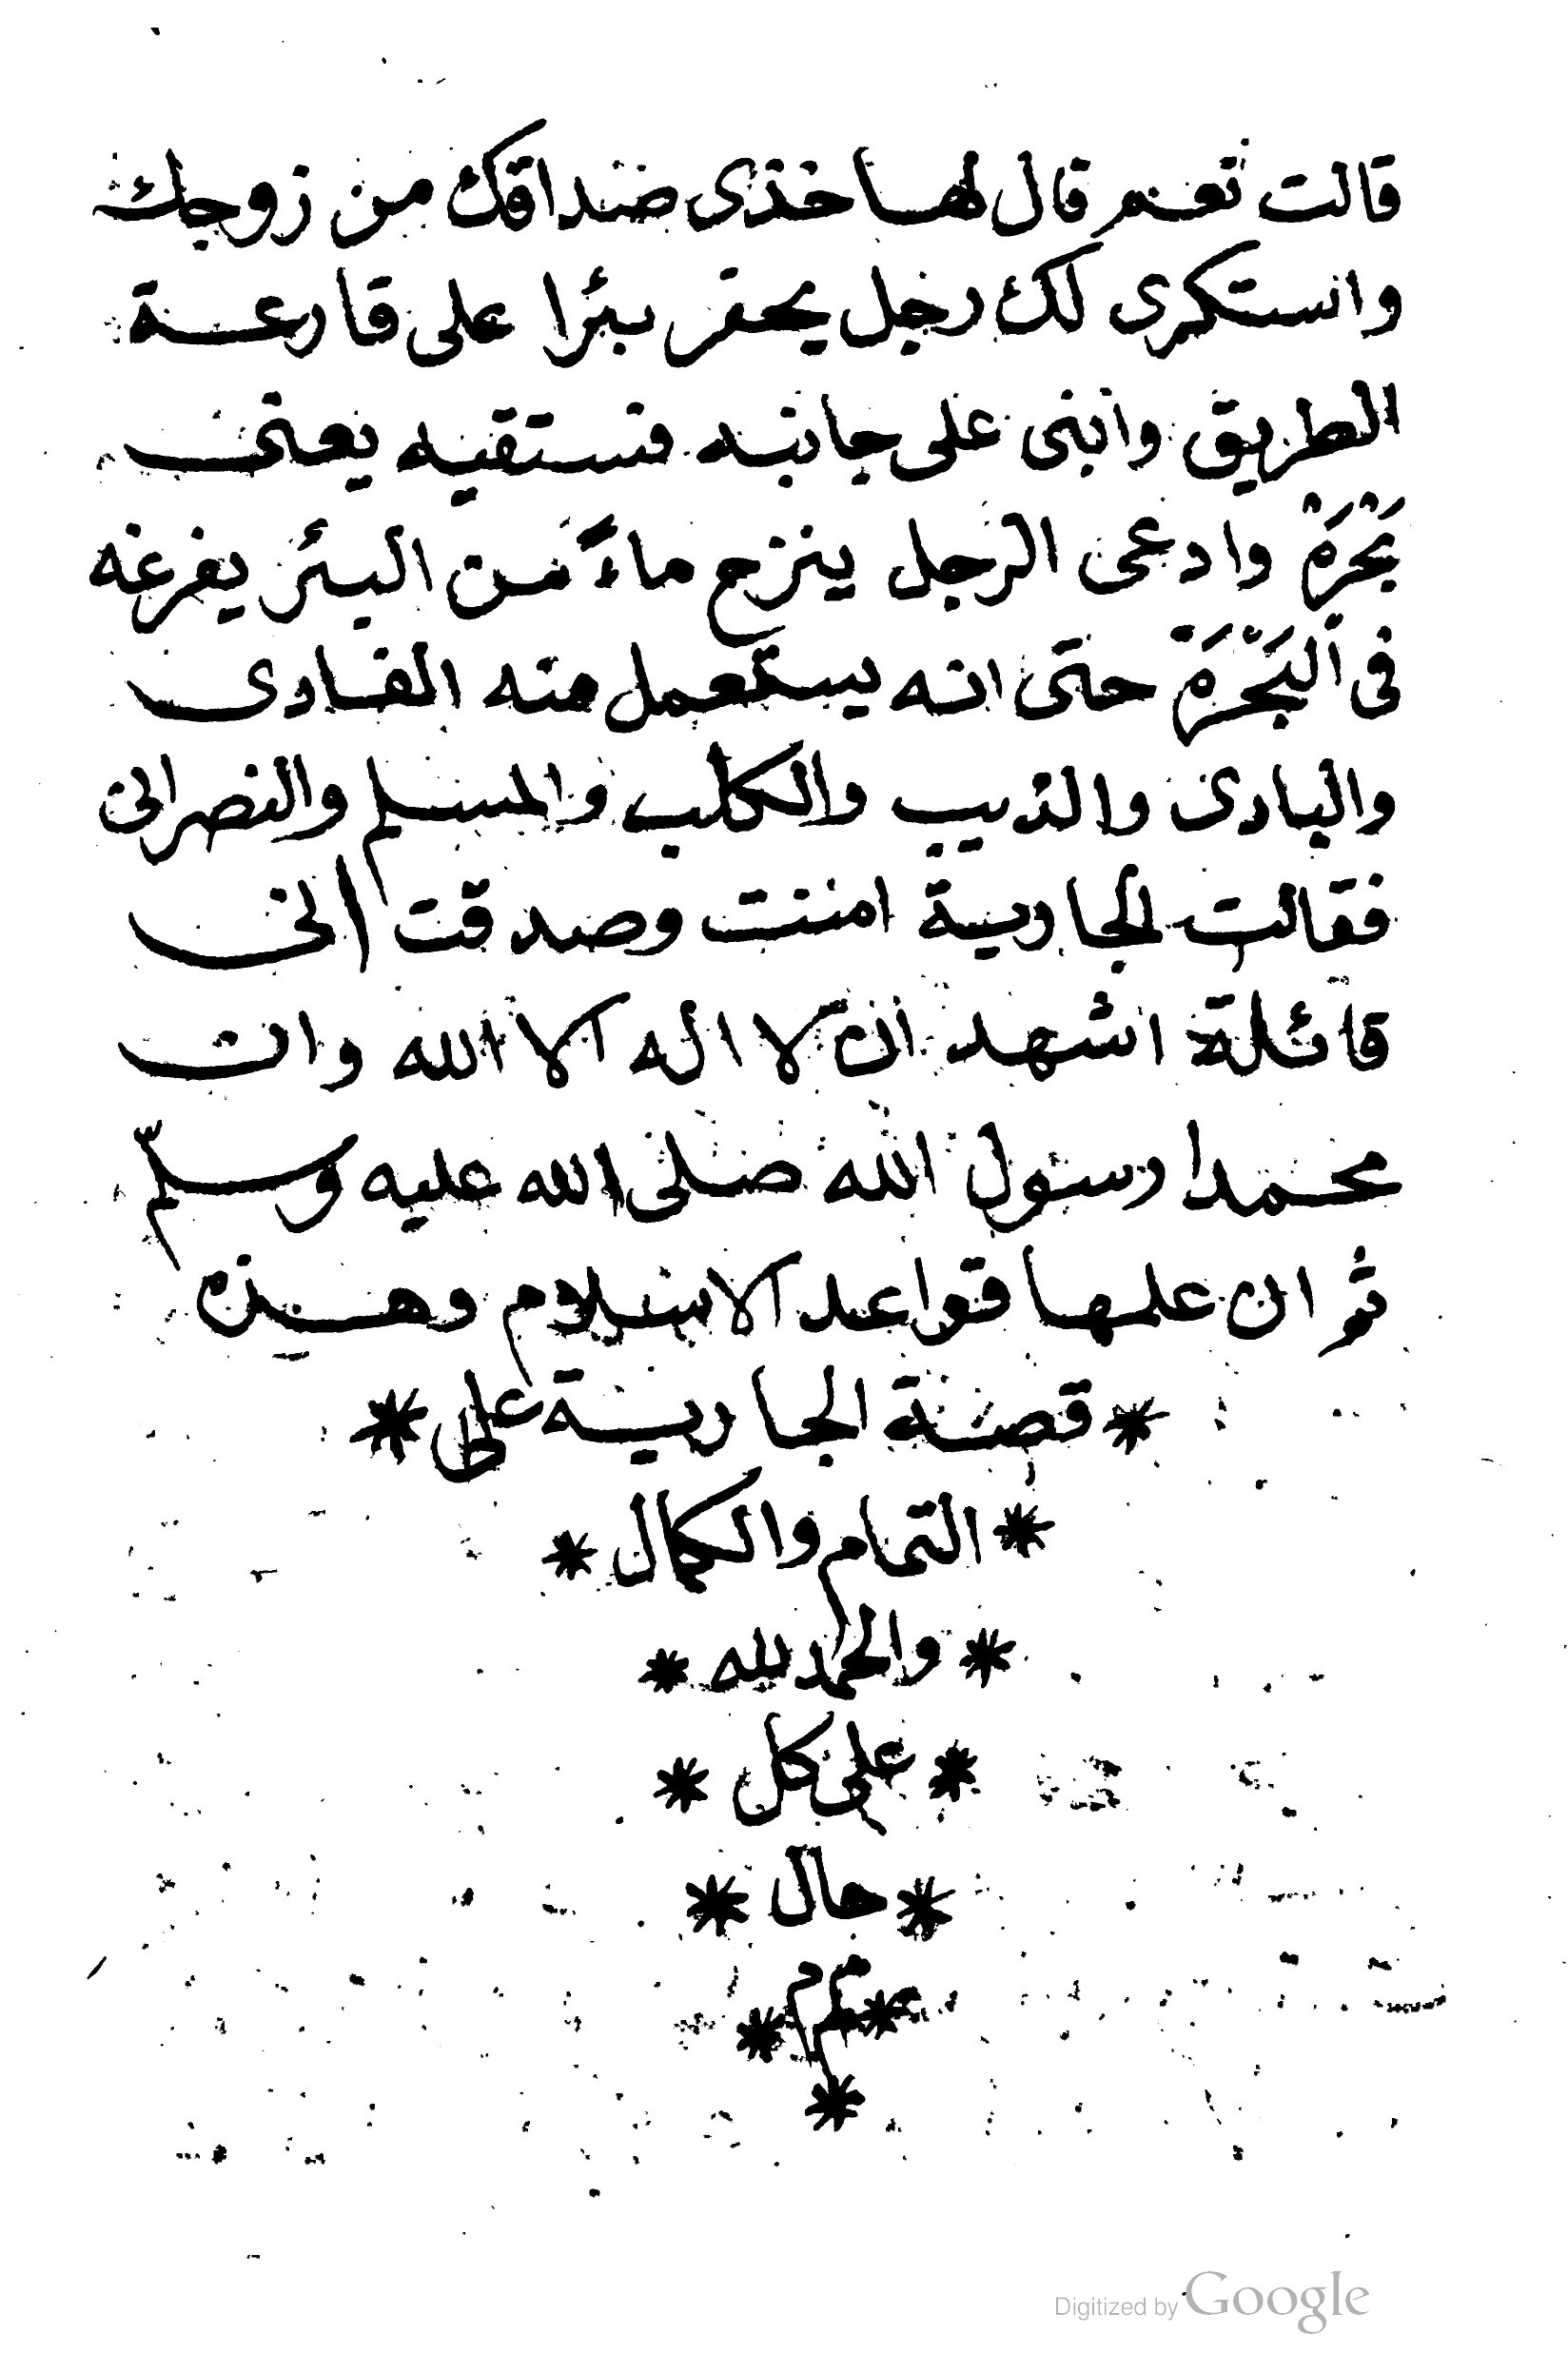 قالت نعم قال لها خذى صداقك من زوجك
واستكرى لك رجل يحفر بئرا على قارعة
الطريق وابنى على جانبه فستقيه يعنى
بَحْرَةْ وادعى الرجل ينزح ماءً من البئر يفرغه
فى البَحْرَة حتى انه يستعمل منه الغادى
والبادى والذيب والكلب والمسلم والنصرانى
فقالت الجارية امنت وصدقت انى
قائلة اشهد ان لا اله الا الله وان
محمدا رسول الله صلى الله عليه وسلّم
ثم ان علمها قواعد الاسلام وهذه
* قصة الجارية على *
* التمام والكمال *
* والحمد لله *
* على كل *
* حال *
* م م *
*
Digitized by Google